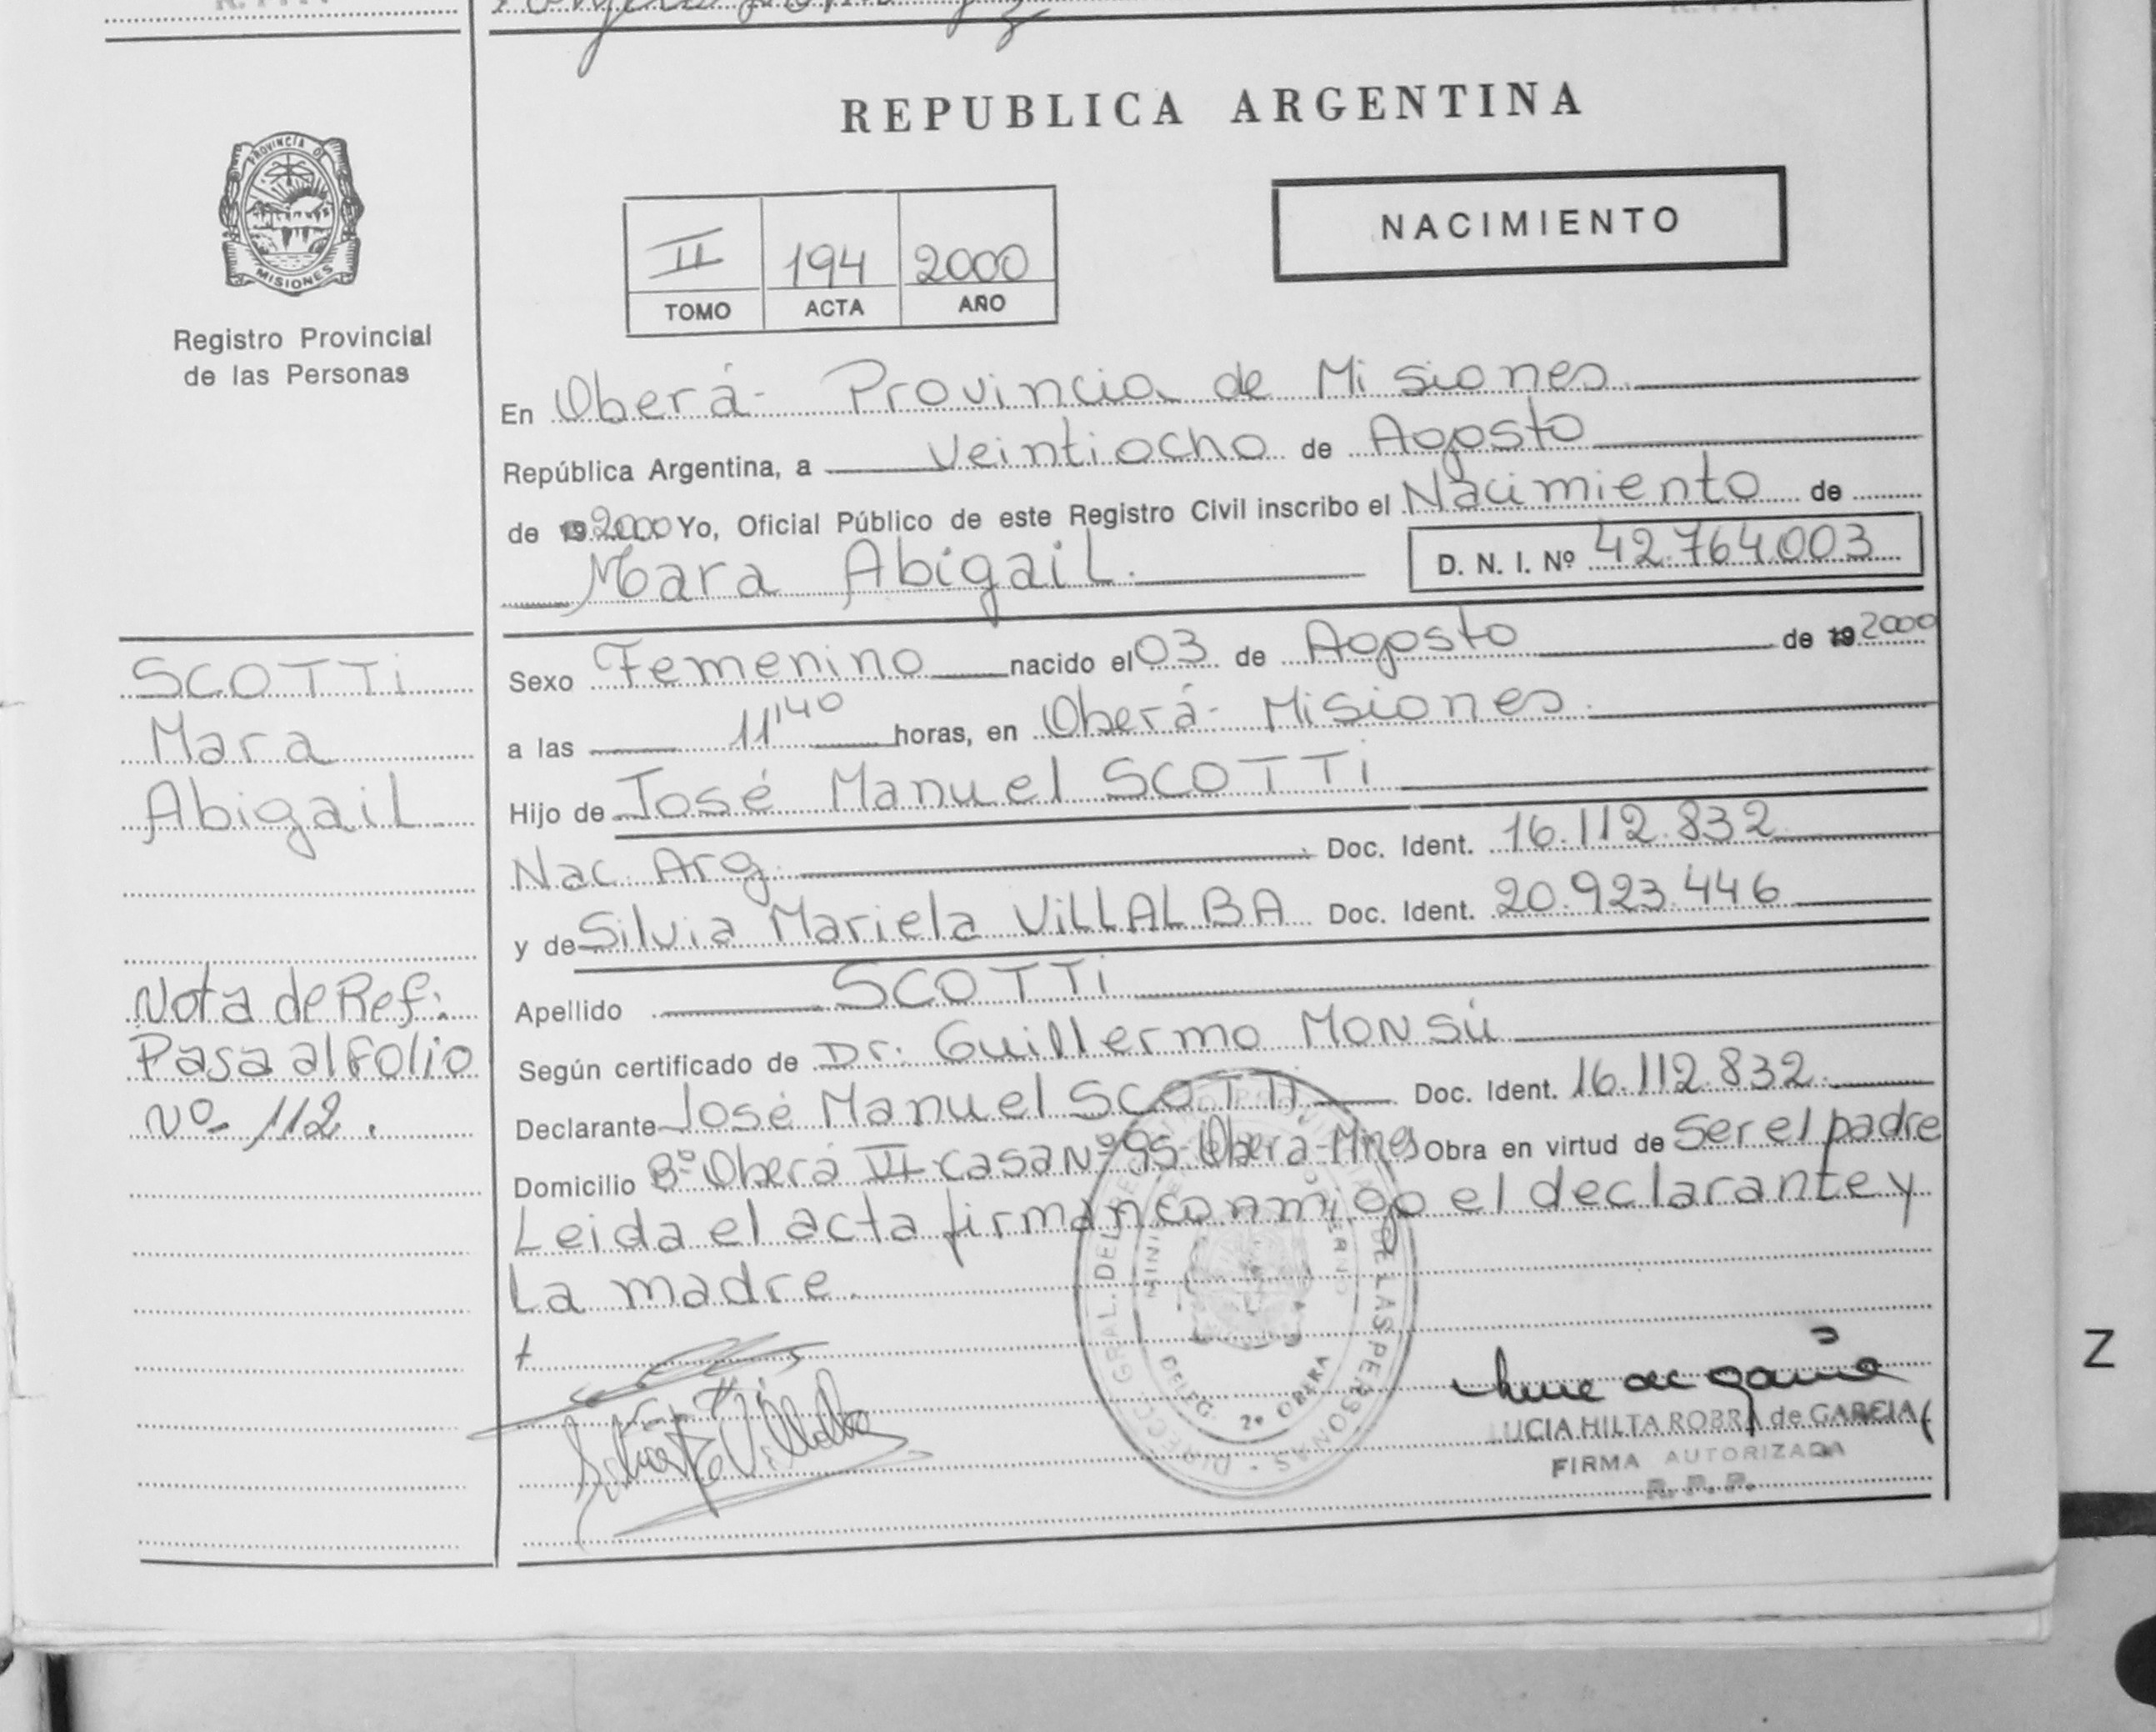 REPUBLICA ARGENTINA
PROVINCIA DE
MISIONES
Registro Provincial
de las Personas
NACIMIENTO
II 194 2000
TOMO ACTA AÑO
En Oberá - Provincia de Misiones
República Argentina, a veintiocho de Agosto
de 19 2000 Yo, Oficial Público de este Registro Civil inscribo el Nacimiento de
Mara Abigail. D. N. I. Nº 42.764.003
SCOTTi
Mara
Abigail
Sexo Femenino nacido el 03 de Agosto de 19 2000
a las 11'40 horas, en Oberá - Misiones.
Hijo de José Manuel SCOTTi
Nac. Arg. Doc. Ident. 16.112.832
y de Silvia Mariela ViLLALBA Doc. Ident. 20.923.446
Apellido SCOTTi
Según certificado de Dr. Guillermo MONSÚ
Declarante José Manuel SCOTTi Doc. Ident. 16.112.832.
Domicilio Bº Oberá VI casa Nº 95 - Oberá - Mnes Obra en virtud de Ser el padre
Leida el acta firman conmigo el declarante y
La madre.
Nota de Ref:
Pasa al Folio
Nº 112.
DELEG. 2º OBERA
LUCIA HILTA ROBRA de GARCIA
FIRMA AUTORIZADA
R. P. P.
Z